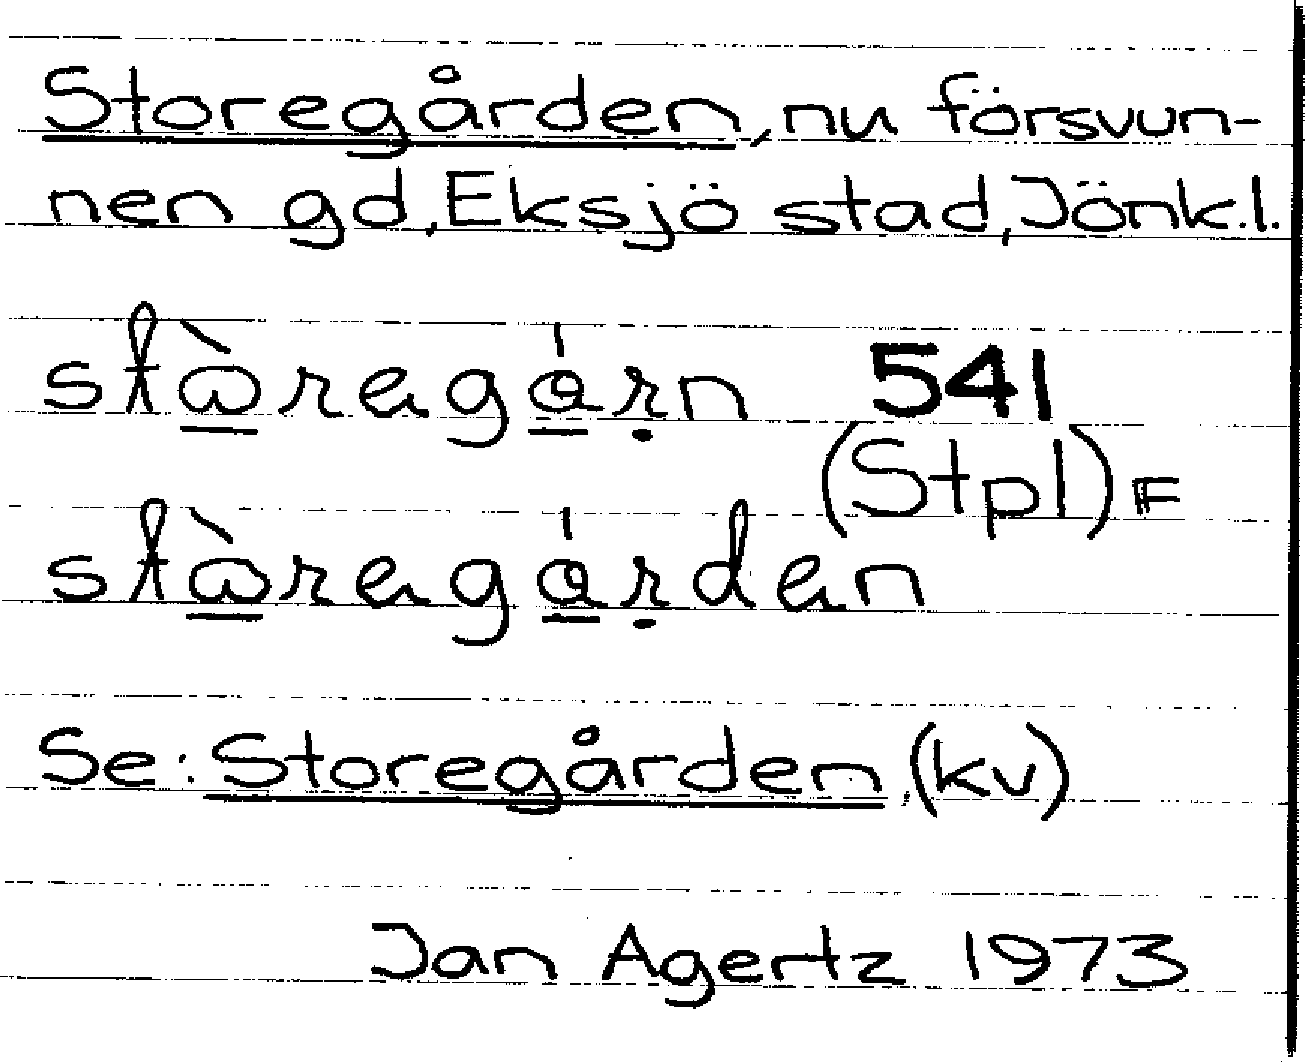 Storegården, nu försvun-
nen gd, Eksjö stad, Jönk.l.
stòregárn 541
(Stpl) F
stòregárden
Se: Storegården, (kv)
Jan Agertz 1973